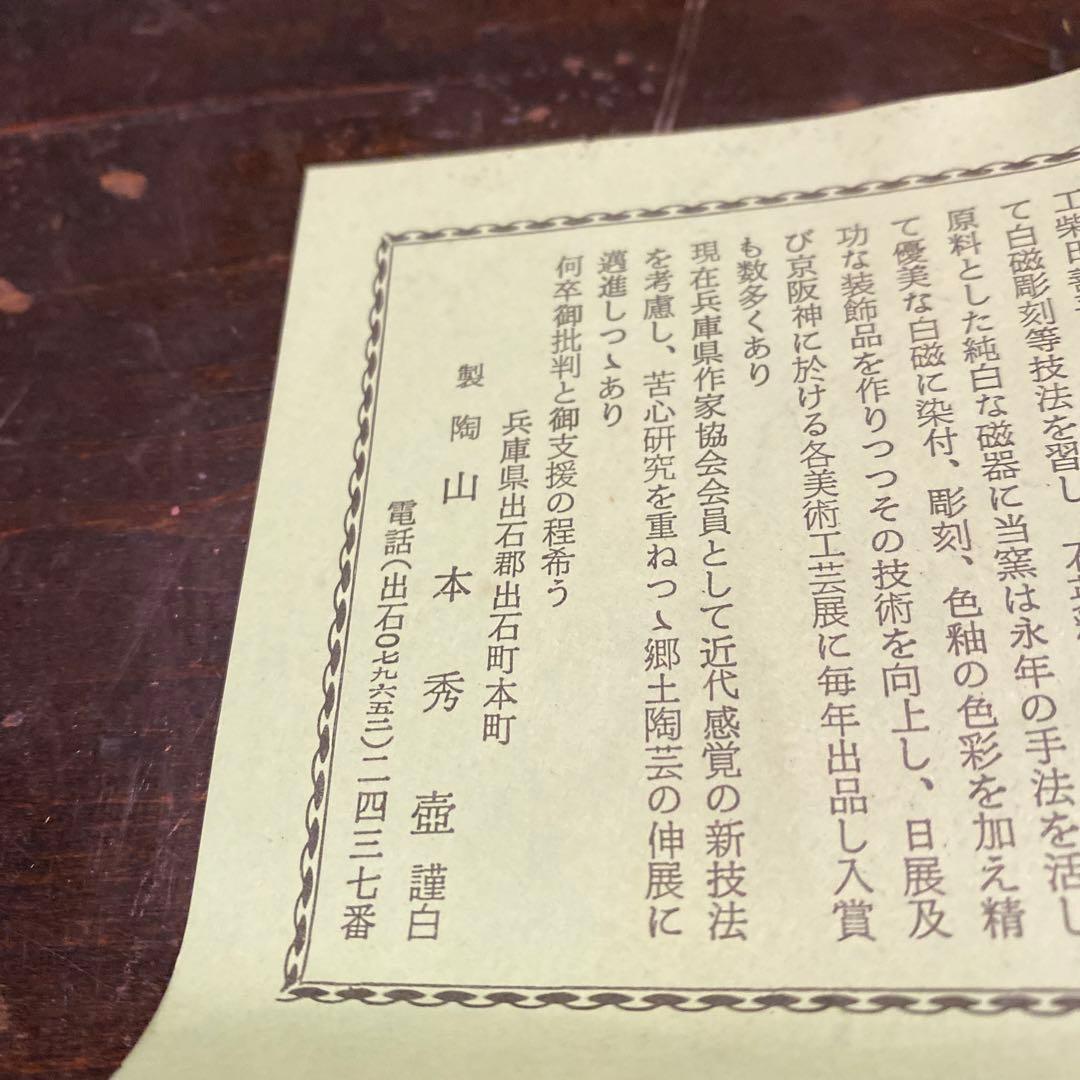 工柴田善
て白磁彫刻等技法を習し
原料とした純白な磁器に当窯は永年の手法を活し
て優美な白磁に染付、彫刻、色釉の色彩を加え精
功な装飾品を作りつつその技術を向上し、日展及
び京阪神に於ける各美術工芸展に毎年出品し入賞
も数多くあり
現在兵庫県作家協会会員として近代感覚の新技法
を考慮し、苦心研究を重ねつゝ郷土陶芸の伸展に
邁進しつゝあり
何卒御批判と御支援の程希う
兵庫県出石郡出石町本町
製陶 山本秀壺 謹白
電話(出石〇七九六五二)二四三七番